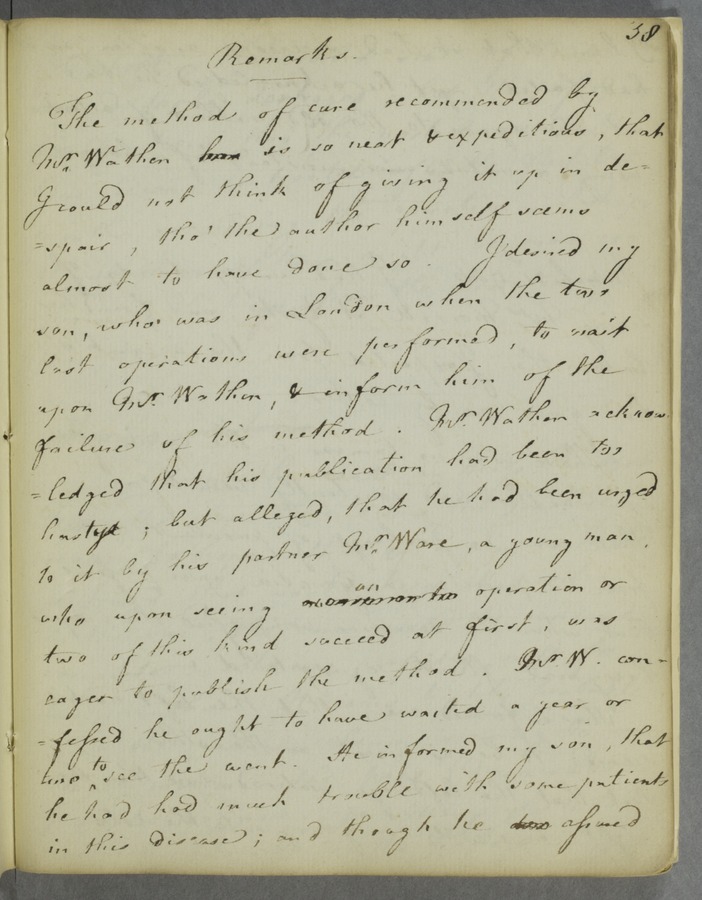 38
Remarks.
The method of cure recommended by
Mr. Wathen is so neat & expeditious, that
I could not think of giving it up in de=
=spair, tho' the author himself seems
almost to have done so. I desired my
son, who was in London when the two
last operations were performed, to wait
upon Mr. Wathen, & inform him of the
failure of his method. Mr. Wathen acknow
=ledged that his publication had been too
hasty; but alleged, that he had been urged
to it by his partner Mr. Ware, a young man,
who upon seeing an operation or
two of this kind succeed at first, was
eager to publish the method. Mr. W. con-
=fessed he ought to have waited a year or
two to see the event. He informed my son, that
he had had much trouble with some patients
in this disease; and though he assured